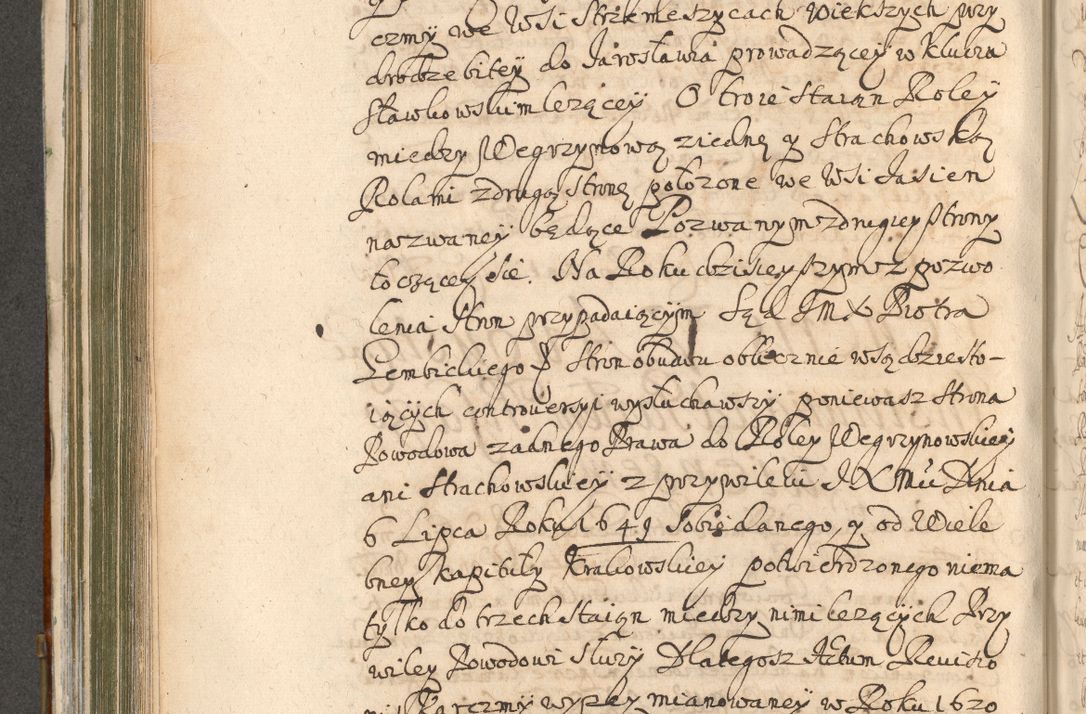 czmy we Wsi Strzemeszycach Wiekszych przy
drodze bitey do Jarosławia prowadzącey w Kluczu
Sławkowskim lezącey O troie Staian Roley
miedzy Węgrzynową ziedney y Strachowską
Rolami z drugą Stroną położone we Wsi Jasien
nazwaney będące Pozwanym z drugiey Strony
toczącey Sie. Na Roku dzisieyszym z pozwo
lenia Stron przypadaiącym Sąd JM X Piotra
Gembickiego Stron obudwu obliecznie w sądzie sto-
iących controwersyi wysłuchawszy poniewasz Strona
Powodowa zadnego Prawa do Roley Węgrzynowskiey
ani Strachowskiey z przywileiu Dnia
6 Lipca Roku 1649 Sobie danego, y od Wiele
bney Kapituły Krakowskiey potwierdzonego niema
tylko do trzech Staian miedzy nimi lezących Przy
wiley Powodowi Służy Dlategosz Aktum Revisio
nis Karczmy wyzey mianowaney w Roku 1620